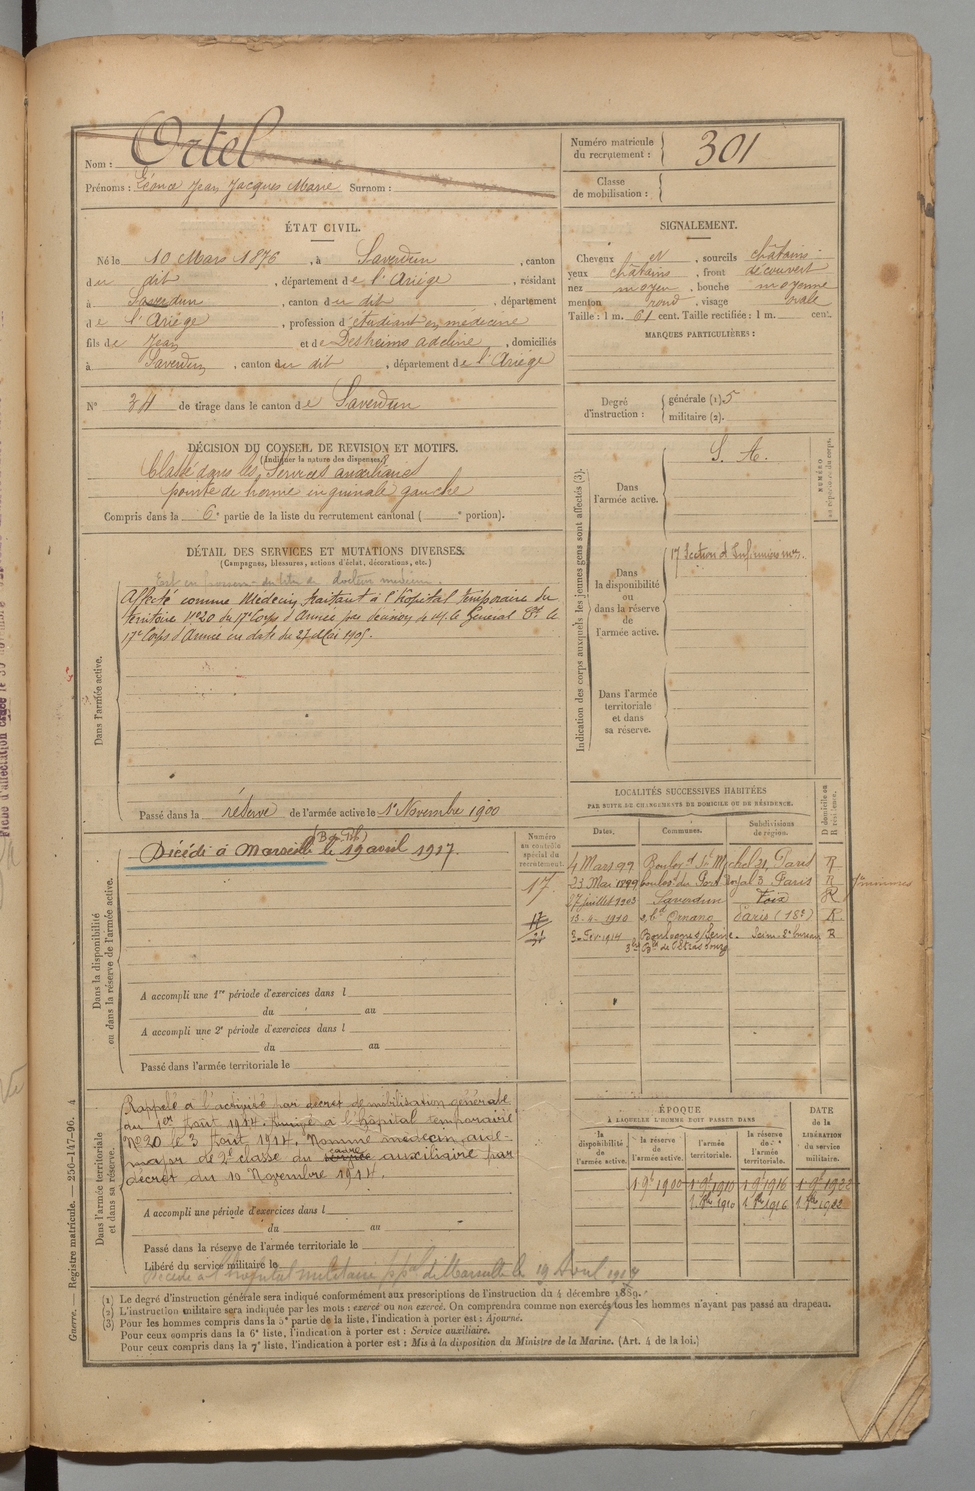 Nom : Ortel
Prénoms : Léonce Jean Jacques Marie Surnom :
Numéro matricule du recrutement : 301
Classe de mobilisation :
ÉTAT CIVIL.
Né le 10 Mars 1876, à Saverdun, canton
du dit, département de l'Ariège, résidant
à Saverdun, canton du dit, département
de l'Ariège, profession d'étudiant en médecine
fils de Jean et de Desheims adeline, domiciliés
à Saverdun, canton du dit, département de l'Ariège
N° 34 de tirage dans le canton de Saverdun
SIGNALEMENT.
Cheveux et, sourcils châtains
yeux châtains, front découvert
nez moyen, bouche moyenne
menton rond, visage ovale
Taille : 1 m. 61 cent. Taille rectifiée : 1 m. cent.
MARQUES PARTICULIÈRES :
Degré d'instruction : générale (1) 5
militaire (2).
DÉCISION DU CONSEIL DE REVISION ET MOTIFS.
(Indiquer la nature des dispenses.)
Classé dans les Services auxiliaires
pointe de hernie inguinale gauche
Compris dans la 6e partie de la liste du recrutement cantonal ( e portion).
DÉTAIL DES SERVICES ET MUTATIONS DIVERSES.
(Campagnes, blessures, actions d'éclat, décorations, etc.)
Dans l'armée active.
Est en du titre de docteur médecin.
Affecté comme Médecin traitant à l'hôpital temporaire du
territoire N°20 du 17e Corps d'Armée par décision de M. le Général Ct le
17e Corps d'Armée en date du 27 Mai 1905.
Passé dans la réserve de l'armée active le 1er Novembre 1900
Indication des corps auxquels les jeunes gens sont affectés (3).
NUMÉRO au répertoire du corps.
Dans l'armée active.
S. A.
Dans la disponibilité ou dans la réserve de l'armée active.
17 Section d'Infirmiers mres.
Dans l'armée territoriale et dans sa réserve.
Dans la disponibilité ou dans la réserve de l'armée active.
(B. du Rh.)
Décédé à Marseille le 19 avril 1917.
Numéro au contrôle spécial du recrutement.
17.
A accompli une 1re période d'exercices dans l
du au
A accompli une 2e période d'exercices dans l
du au
Passé dans l'armée territoriale le
LOCALITÉS SUCCESSIVES HABITÉES
PAR SUITE DE CHANGEMENTS DE DOMICILE OU DE RÉSIDENCE.
Dates. Communes. Subdivisions de région. D domicile ou R résidence.
4 Mars 99 Boulev. d St Michel 21, Paris R
23 Mai 1899 boulev. du Port Royal 3 Paris R
27 juillet 1903 Saverdun Foix R
13-4-1910 2, bd Ornano Paris (18e) R
3 Fév 1914 Boulogne s/Seine Seine 2e bureau R
3 bis Bd de Strasbourg
Dans l'armée territoriale et dans sa réserve.
Rappelé à l'activité par décret de mobilisation générale
du 1er Août 1914. Arrivé à l'hôpital temporaire
N° 20 le 3 Août 1914. Nommé médecin aide-
major de 2e classe du service cadre auxiliaire par
décret du 10 Novembre 1914.
A accompli une période d'exercices dans l
du au
Passé dans la réserve de l'armée territoriale le
Libéré du service militaire le
Décédé à l'hôpital militaire ppal de Marseille le 19 Avril 1917
ÉPOQUE
À LAQUELLE L'HOMME DOIT PASSER DANS
la disponibilité de l'armée active. la réserve de l'armée active. l'armée territoriale. la réserve de l'armée territoriale.
DATE de la LIBÉRATION du service militaire.
1 9e 1900 1 9e 1910 1 9e 1916 1 9e 1922
1 8bre 1910 1 8bre 1916 1 8bre 1922
(1) Le degré d'instruction générale sera indiqué conformément aux prescriptions de l'instruction du 4 décembre 1889.
(2) L'instruction militaire sera indiquée par les mots : exercé ou non exercé. On comprendra comme non exercés tous les hommes n'ayant pas passé au drapeau.
(3) Pour les hommes compris dans la 5e partie de la liste, l'indication à porter est : Ajourné.
Pour ceux compris dans la 6e liste, l'indication à porter est : Service auxiliaire.
Pour ceux compris dans la 7e liste, l'indication à porter est : Mis à la disposition du Ministre de la Marine. (Art. 4 de la loi.)
Guerre. — Registre matricule. — 256-147-96. 4